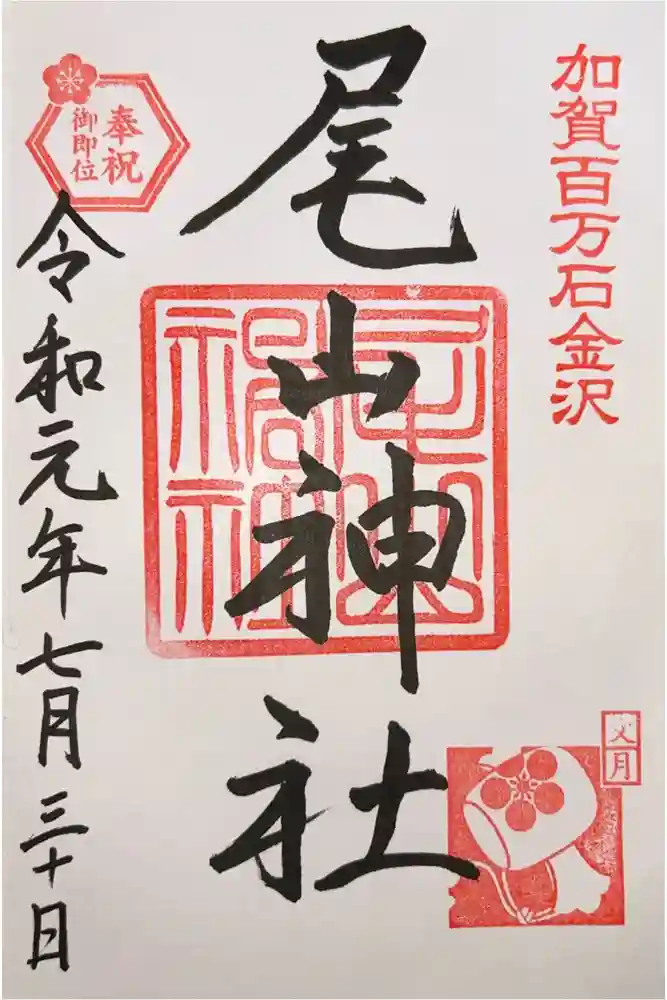 加賀百万石金沢
尾山神社
尾山神社
奉祝
御即位
令和元年七月三十日
文月